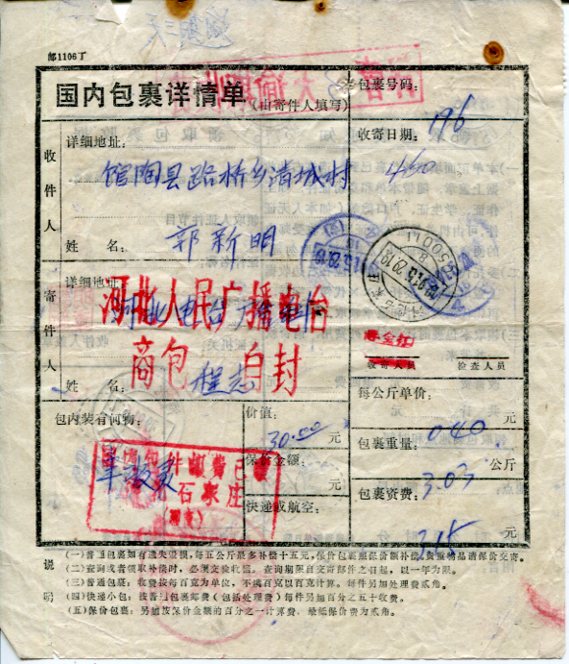 邮1106丁
国内包裹详情单
(由寄件人填写)
包裹号码：
196
收寄日期：
460
收件人
详细地址：
馆陶县路桥乡清城村
姓 名：
郭新明
寄件人
详细地址：
河北人民广播电台
商包 自封
姓 名：
程志
收寄人员
检查人员
包内装有何物：
单放麦
石家庄
价值：
30.00
元
保价金额：
元
快递或航空：
每公斤单价：
元
包裹重量：
040
公斤
包裹资费：
3.03
元
3.15
说明
(一)普通包裹如有遗失毁损，每五公斤最多补偿十五元，保价包裹照保价额补偿，贵重物品请保价交寄。
(二)查询或者领取补偿时，必须交验收据。查询期限自交寄邮件之日起，以一年为限。
(三)普通包裹：收费按每百克为单位，不满百克以百克计算。每件另加处理费贰角。
(四)快递小包：按普通包裹邮费(包括处理费)每件另加百分之五十收费。
(五)保价包裹：另加按保价金额的百分之一计算费，最低保价费为贰角。